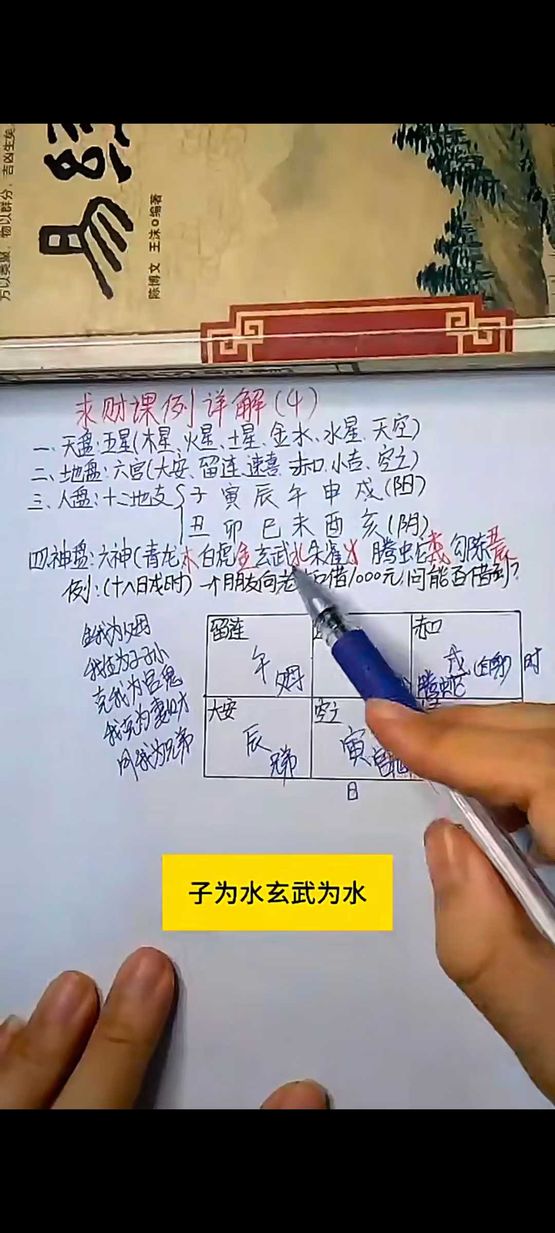 方以类聚,物以群分,吉凶生矣
易
陈博文 王沫 编著
求财课例详解(4)
一、天盘:五星(木星、火星、土星、金水、水星、天空)
二、地盘:六宫(大安、留连、速喜、赤口、小吉、空亡)
三、人盘:十二地支 子 寅 辰 午 申 戌(阳)
丑 卯 巳 未 酉 亥(阴)
四、神盘:六神(青龙木白虎金玄武水朱雀火 腾蛇 勾陈
例:(十八日戌时)一个朋友向 借1000元,问能否借到?
生我为父母
我生为子孙
克我为官鬼
我克为妻财
同我为兄弟
留连
午 父母
赤口
戌(自身) 时
腾蛇
大安
辰 兄弟
空亡
寅 官鬼
日
子为水玄武为水